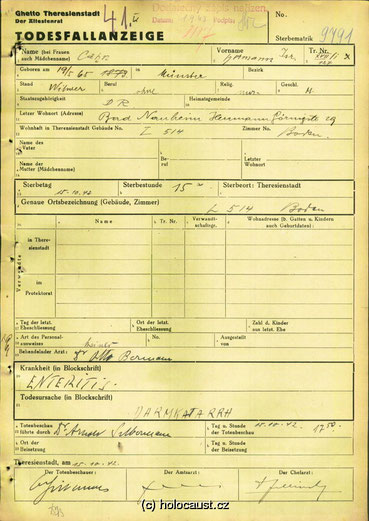 Ghetto Theresienstadt
Der Ältestenrat
41.
Dodatečný zápis nařízen
Datum
Podpis
No.
TODESFALLANZEIGE
Sterbematrik 9491
Name (bei Frauen auch Mädchenname)
Vorname Hermann Isr.
Tr. Nr.
Geboren am 19/5 65 in Münster Bezirk
Stand Witwer Beruf ohne Relig. mos. Geschl. M
Staatsgehörigkeit D.R. Heimatsgemeinde
Letzter Wohnort (Adresse) Bad Nauheim Hermann Göringstr. 29
Wohnhaft in Theresienstadt Gebäude No. L 514 Zimmer No. Boden
Name des Vater
Beruf
Letzter Wohnort
Name der Mutter (Mädchenname)
Sterbetag 15.10.42 Sterbestunde 15 Sterbeort: Theresienstadt
Genaue Ortsbezeichnung (Gebäude, Zimmer) L 514 Boden
Name
Tr. Nr.
Verwandtschaftsgr.
Wohnadresse (b. Gatten u. Kindern auch Geburtsdaten)
Verwandte
in Theresienstadt
im Protektorat
Tag der letzt. Eheschliessung
Ort der letzt. Eheschliessung
Zahl d. Kinder aus letzt. Ehe
Art des Personalausweises
No.
Ausgestellt von
Behandelnder Arzt: Dr Otto Bermann
Krankheit (in Blockschrift)
ENTERITIS.
Todesursache (in Blockschrift)
DARMKATARRH
Totenbeschau führte durch Dr Arnold Silbermann
Tag u. Stunde der Totenbeschau 15.10.42. 17
Ort der Beisetzung
Tag u. Stunde der Beisetzung
Theresienstadt, am 15.10.42.
Der Totenbeschauer:
Der Amtsarzt:
Der Chefarzt:
(c) holocaust.cz